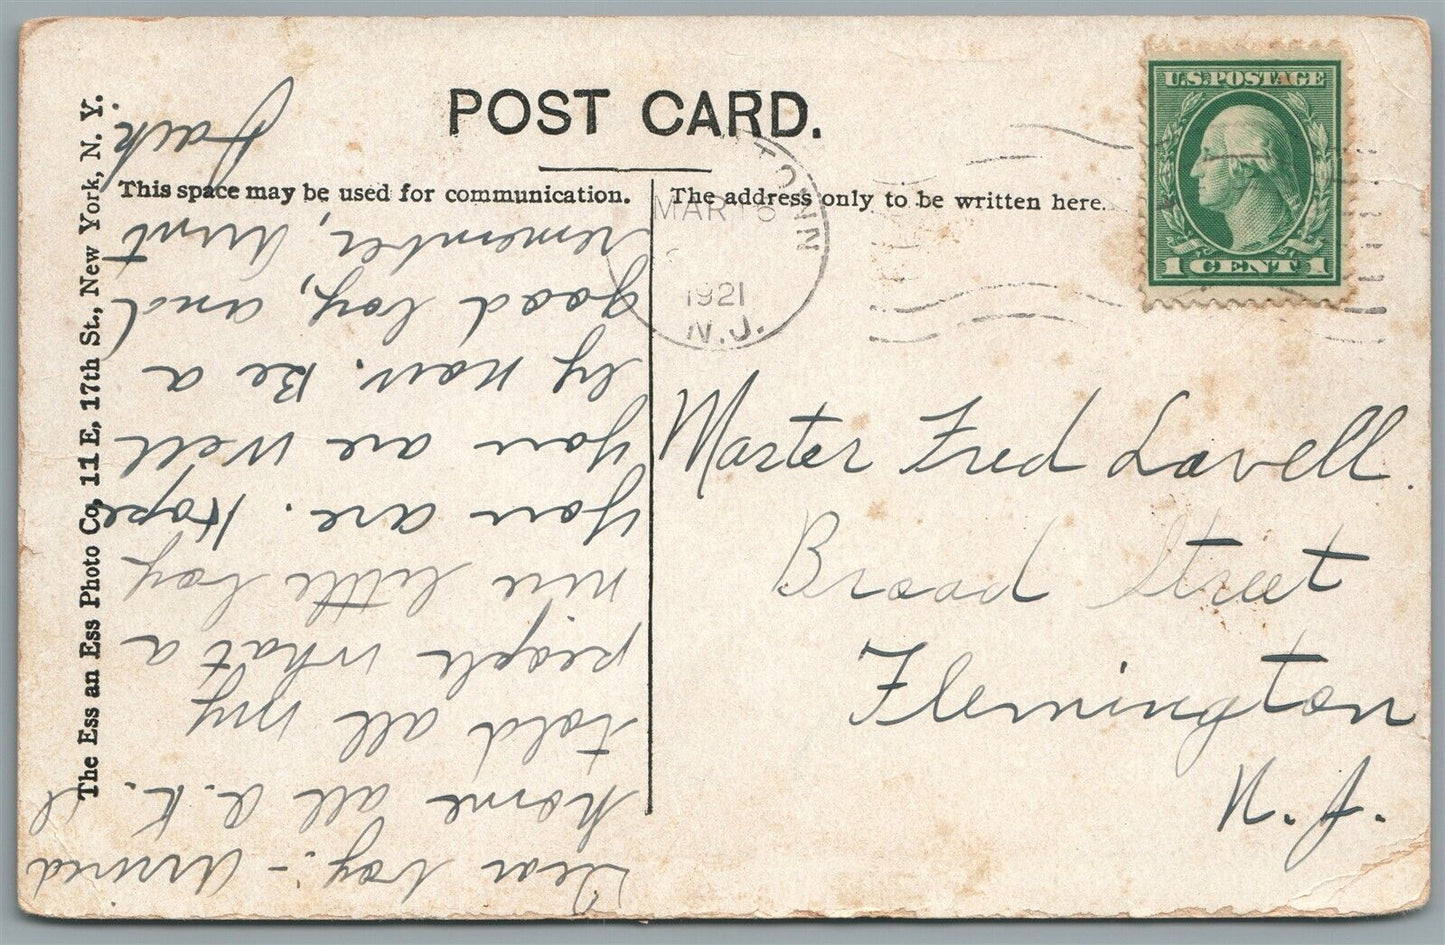 POST CARD.
This space may be used for communication.
The address only to be written here.
The Ess an Ess Photo Co, 11 E, 17th St., New York, N. Y.
U.S. POSTAGE
1 CENT 1
MAR 16
1921
N.J.
Master Fred Lavell.
Broad Street
Flemington
N. J.
Dear boy:- Arrived
home all O.K. I
told all my
people what a
nice little boy
you are. Hope
you are well
by now. Be a
good boy, and
remember, Aunt
Jack